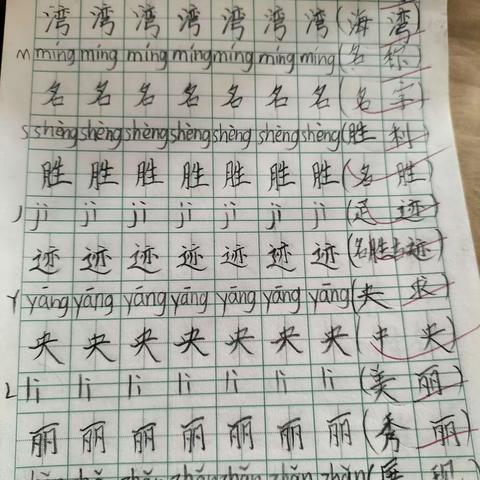 湾 湾 湾 湾 湾 湾 湾 (海 湾)
M míng míng míng míng míng míng míng (名 称)
名 名 名 名 名 名 名 (名 字)
S shèng shèng shèng shèng shèng shèng shèng (胜 利)
胜 胜 胜 胜 胜 胜 胜 (名 胜)
J jì jì jì jì jì jì jì (足 迹)
迹 迹 迹 迹 迹 迹 迹 (名胜古迹)
Y yāng yāng yāng yāng yāng yāng yāng (央 求)
央 央 央 央 央 央 央 (中 央)
L lì lì lì lì lì lì lì (美 丽)
丽 丽 丽 丽 丽 丽 丽 (秀 丽)
zhǎn zhǎn zhǎn zhǎn (展 现)